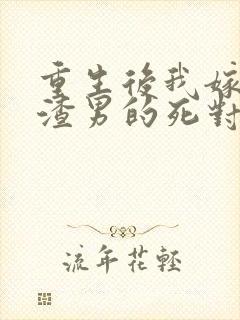 重生後我嫁
渣男的死對
流年花輕